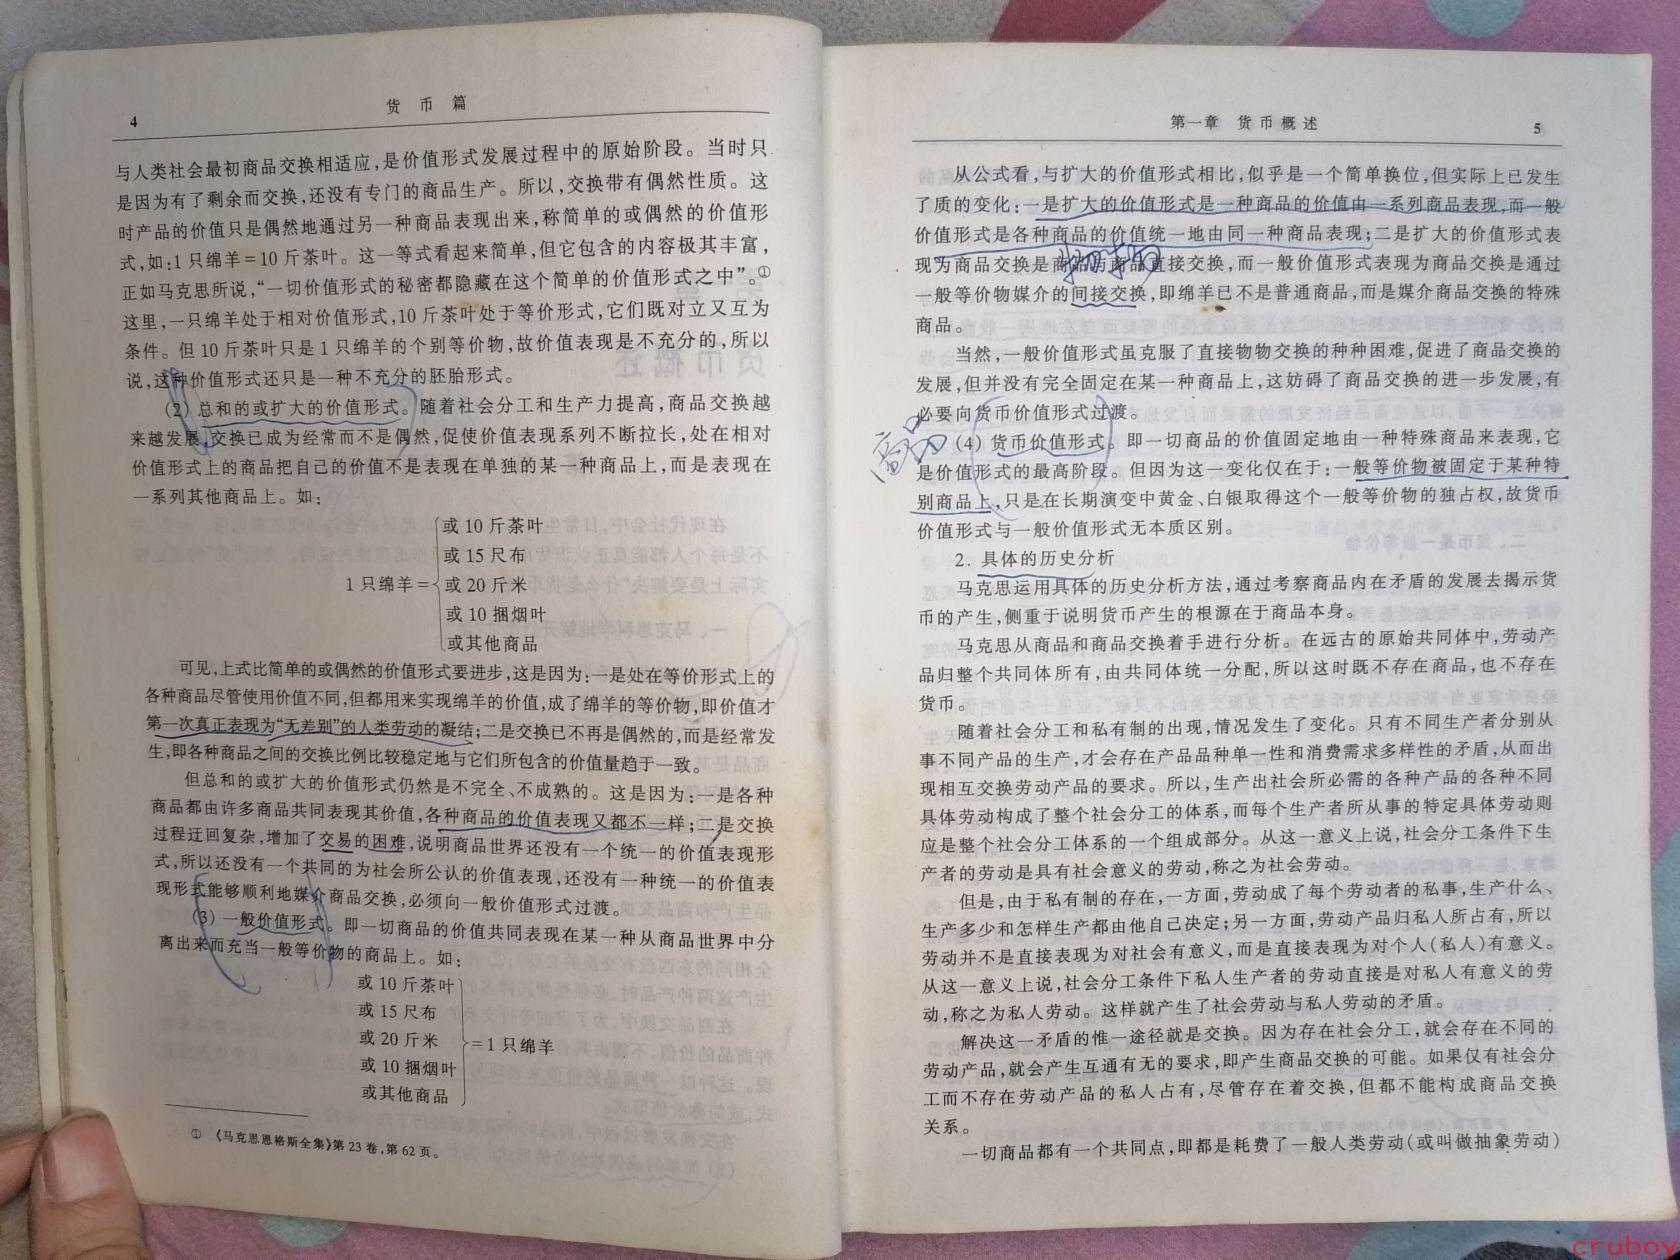 4
货 币 篇
与人类社会最初商品交换相适应,是价值形式发展过程中的原始阶段。当时只
是因为有了剩余而交换,还没有专门的商品生产。所以,交换带有偶然性质。这
时产品的价值只是偶然地通过另一种商品表现出来,称简单的或偶然的价值形
式,如:1只绵羊=10斤茶叶。这一等式看起来简单,但它包含的内容极其丰富,
正如马克思所说,“一切价值形式的秘密都隐藏在这个简单的价值形式之中”。①
这里,一只绵羊处于相对价值形式,10斤茶叶处于等价形式,它们既对立又互为
条件。但10斤茶叶只是1只绵羊的个别等价物,故价值表现是不充分的,所以
说,这种价值形式还只是一种不充分的胚胎形式。
(2) 总和的或扩大的价值形式。随着社会分工和生产力提高,商品交换越
来越发展,交换已成为经常而不是偶然,促使价值表现系列不断拉长,处在相对
价值形式上的商品把自己的价值不是表现在单独的某一种商品上,而是表现在
一系列其他商品上。如:
或10斤茶叶
或15尺布
1只绵羊= 或20斤米
或10捆烟叶
或其他商品
可见,上式比简单的或偶然的价值形式要进步,这是因为:一是处在等价形式上的
各种商品尽管使用价值不同,但都用来实现绵羊的价值,成了绵羊的等价物,即价值才
第一次真正表现为“无差别”的人类劳动的凝结;二是交换已不再是偶然的,而是经常发
生,即各种商品之间的交换比例比较稳定地与它们所包含的价值量趋于一致。
但总和的或扩大的价值形式仍然是不完全、不成熟的。这是因为:一是各种
商品都由许多商品共同表现其价值,各种商品的价值表现又都不一样;二是交换
过程迂回复杂,增加了交易的困难,说明商品世界还没有一个统一的价值表现形
式,所以还没有一个共同的为社会所公认的价值表现,还没有一种统一的价值表
现形式能够顺利地媒介商品交换,必须向一般价值形式过渡。
(3) 一般价值形式。即一切商品的价值共同表现在某一种从商品世界中分
离出来而充当一般等价物的商品上。如:
或10斤茶叶
或15尺布
或20斤米 =1只绵羊
或10捆烟叶
或其他商品
① 《马克思恩格斯全集》第23卷,第62页。
第一章 货币概述
5
从公式看,与扩大的价值形式相比,似乎是一个简单换位,但实际上已发生
了质的变化:一是扩大的价值形式是一种商品的价值由一系列商品表现,而一般
价值形式是各种商品的价值统一地由同一种商品表现;二是扩大的价值形式表
物物
现为商品交换是商品与商品直接交换,而一般价值形式表现为商品交换是通过
一般等价物媒介的间接交换,即绵羊已不是普通商品,而是媒介商品交换的特殊
商品。
当然,一般价值形式虽克服了直接物物交换的种种困难,促进了商品交换的
发展,但并没有完全固定在某一种商品上,这妨碍了商品交换的进一步发展,有
必要向货币价值形式过渡。
商品
(4) 货币价值形式。即一切商品的价值固定地由一种特殊商品来表现,它
是价值形式的最高阶段。但因为这一变化仅在于:一般等价物被固定于某种特
别商品上,只是在长期演变中黄金、白银取得这个一般等价物的独占权,故货币
价值形式与一般价值形式无本质区别。
2. 具体的历史分析
马克思运用具体的历史分析方法,通过考察商品内在矛盾的发展去揭示货
币的产生,侧重于说明货币产生的根源在于商品本身。
马克思从商品和商品交换着手进行分析。在远古的原始共同体中,劳动产
品归整个共同体所有,由共同体统一分配,所以这时既不存在商品,也不存在
货币。
随着社会分工和私有制的出现,情况发生了变化。只有不同生产者分别从
事不同产品的生产,才会存在产品品种单一性和消费需求多样性的矛盾,从而出
现相互交换劳动产品的要求。所以,生产出社会所必需的各种产品的各种不同
具体劳动构成了整个社会分工的体系,而每个生产者所从事的特定具体劳动则
应是整个社会分工体系的一个组成部分。从这一意义上说,社会分工条件下生
产者的劳动是具有社会意义的劳动,称之为社会劳动。
但是,由于私有制的存在,一方面,劳动成了每个劳动者的私事,生产什么、
生产多少和怎样生产都由他自己决定;另一方面,劳动产品归私人所占有,所以
劳动并不是直接表现为对社会有意义,而是直接表现为对个人(私人)有意义。
从这一意义上说,社会分工条件下私人生产者的劳动直接是对私人有意义的劳
动,称之为私人劳动。这样就产生了社会劳动与私人劳动的矛盾。
解决这一矛盾的惟一途径就是交换。因为存在社会分工,就会存在不同的
劳动产品,就会产生互通有无的要求,即产生商品交换的可能。如果仅有社会分
工而不存在劳动产品的私人占有,尽管存在着交换,但都不能构成商品交换
关系。
一切商品都有一个共同点,即都是耗费了一般人类劳动(或叫做抽象劳动)
cruboy